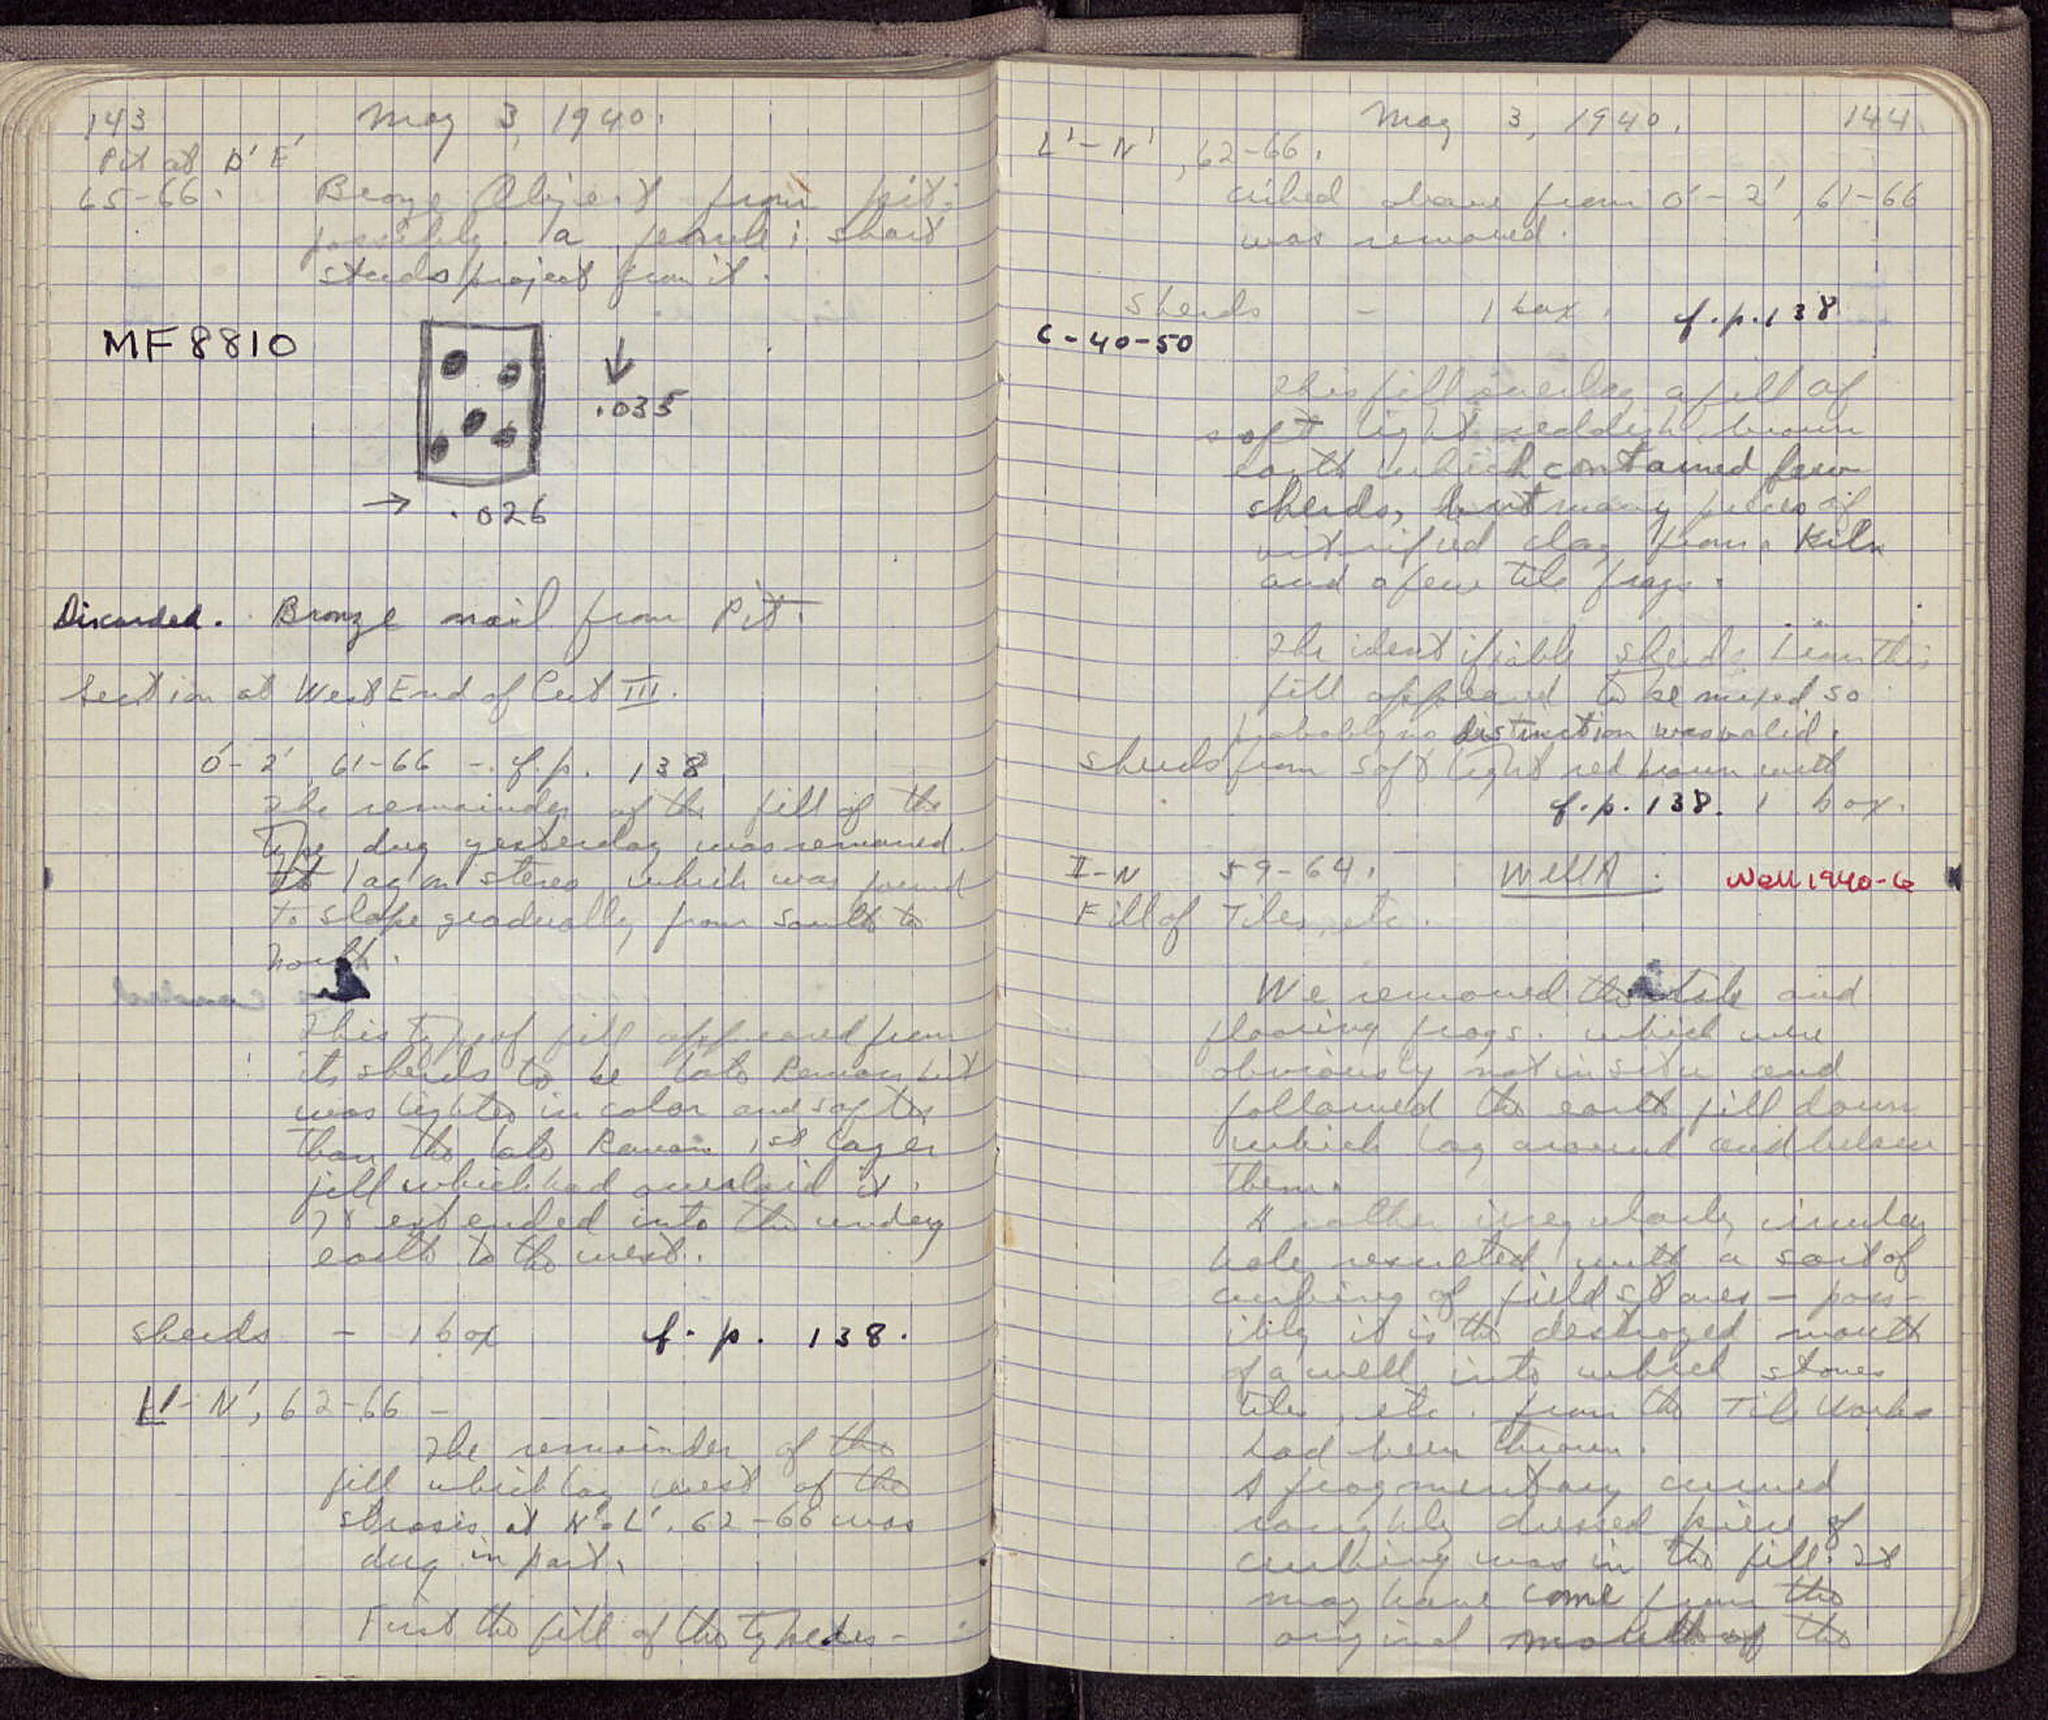 143 May 3, 1940.
Pit at D' E'
65-66. Bronze Object from pit;
possibly a ; short
studs project from it.
MF 8810
.035
→ .026
Discarded. Bronze nail from Pit.
Section at West End of Cut III.
O'-2', 61-66 - cf. p. 138
The remainder of the fill of the
type dug yesterday was removed.
It lay on stereo which was found
to slope gradually from south to
north.
This type of fill appeared from
its sherds to be late Roman but
was lighter in color and softer
than the late Roman 1st layer
fill which had overlaid it.
It extended into the undug
earth to the west.
sherds - 1 box cf. p. 138.
L'-N', 62-66 -
The remainder of the
fill which lay west of the
strosis at N'-L', 62-66 was
dug in part.
First the fill of the type des-
May 3, 1940. 144
L'-N', 62-66.
cribed above from O'-2', 61-66
was removed.
Sherds - 1 box. cf. p. 138
C-40-50
This fill overlay a fill of
soft light reddish brown
earth which contained few
sherds, but many pieces of
vitrified clay from kiln
and a few tile frags.
The identifiable sherds from this
fill appeared to be mixed so
probably no distinction was valid.
Sherds from soft light red brown with
cf. p. 138. 1 box.
II-N 59-64. Well A. Well 1940-6
Fill of Tiles, etc.
We removed the tile and
flooring frags. which were
obviously not in situ and
followed the earth fill down
which lay around and below
them.
A rather irregularly circular
hole resulted with a sort of
curbing of field stones - poss-
ibly it is the destroyed mouth
of a well into which stones
tiles, etc. from the Tile Works
had been thrown.
A fragmentary curved
roughly dressed piece of
curbing was in the fill. It
may have come from the
original mouth of the